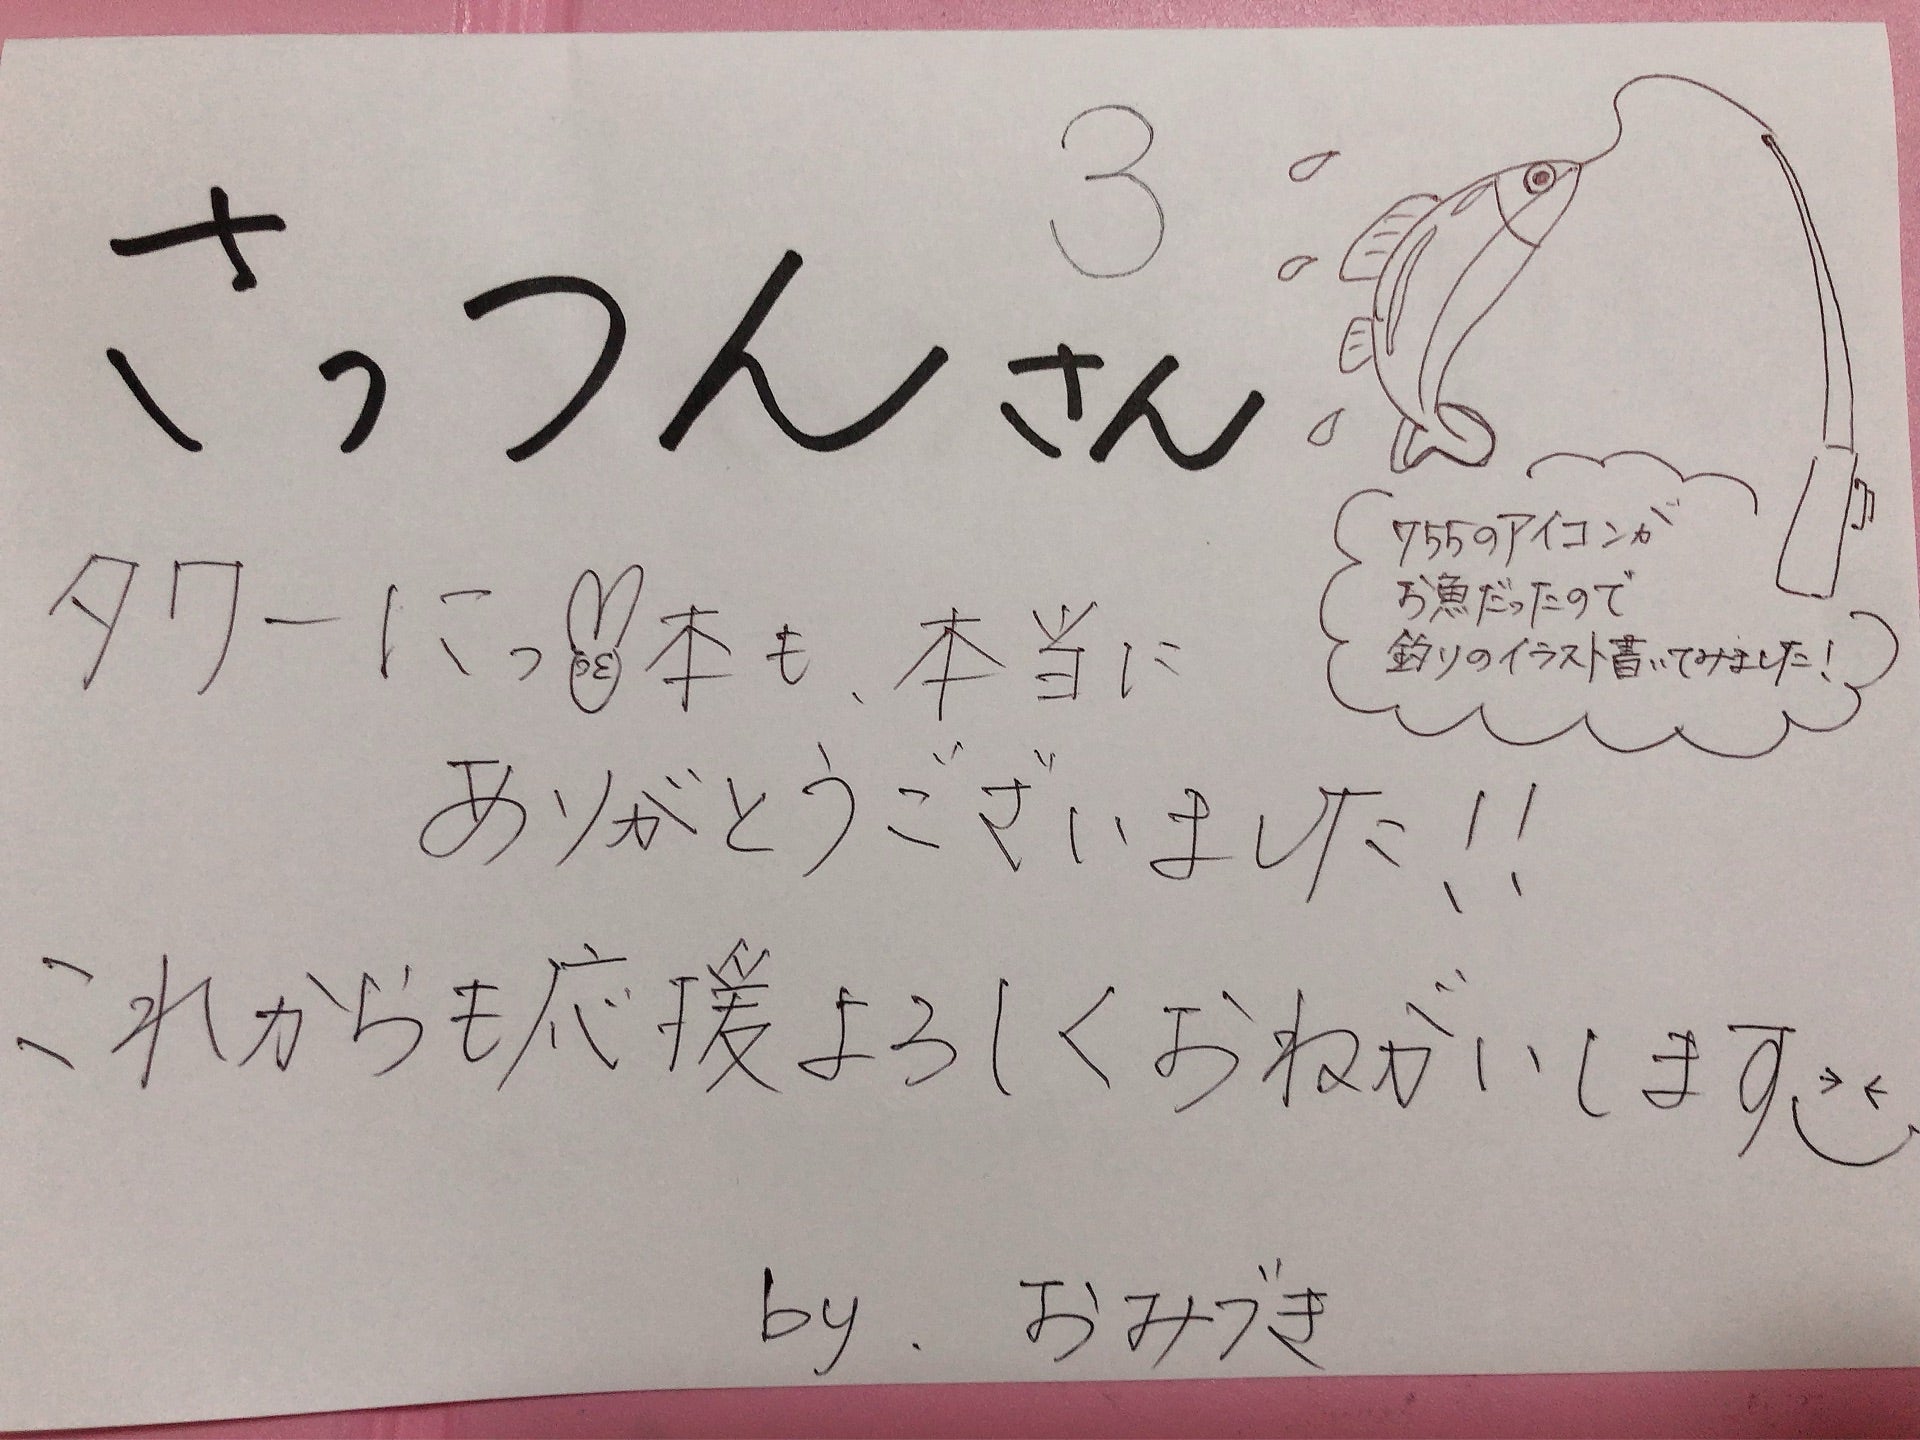 3
さっつんさん
タワーにっ本も、本当に
ありがとうございました!!
これからも応援よろしくおねがいします
755のアイコンが
お魚だったので
釣りのイラスト書いてみました!
by. おみづき